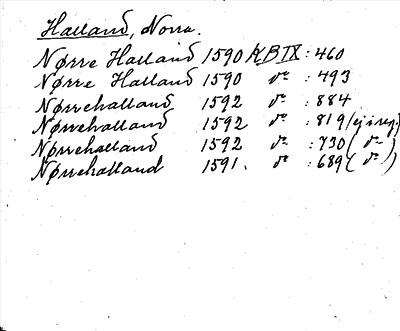 Halland, Norra.
Nørre Halland 1590 KBIX: 460
Nørre Halland 1590 do : 493
Nørrehalland 1592 do : 884
Nørrehalland 1592 do : 819 (ej i reg.)
Nørrehalland 1592 do : 730 ( do )
Nørrehalland 1591. do : 689 ( do )